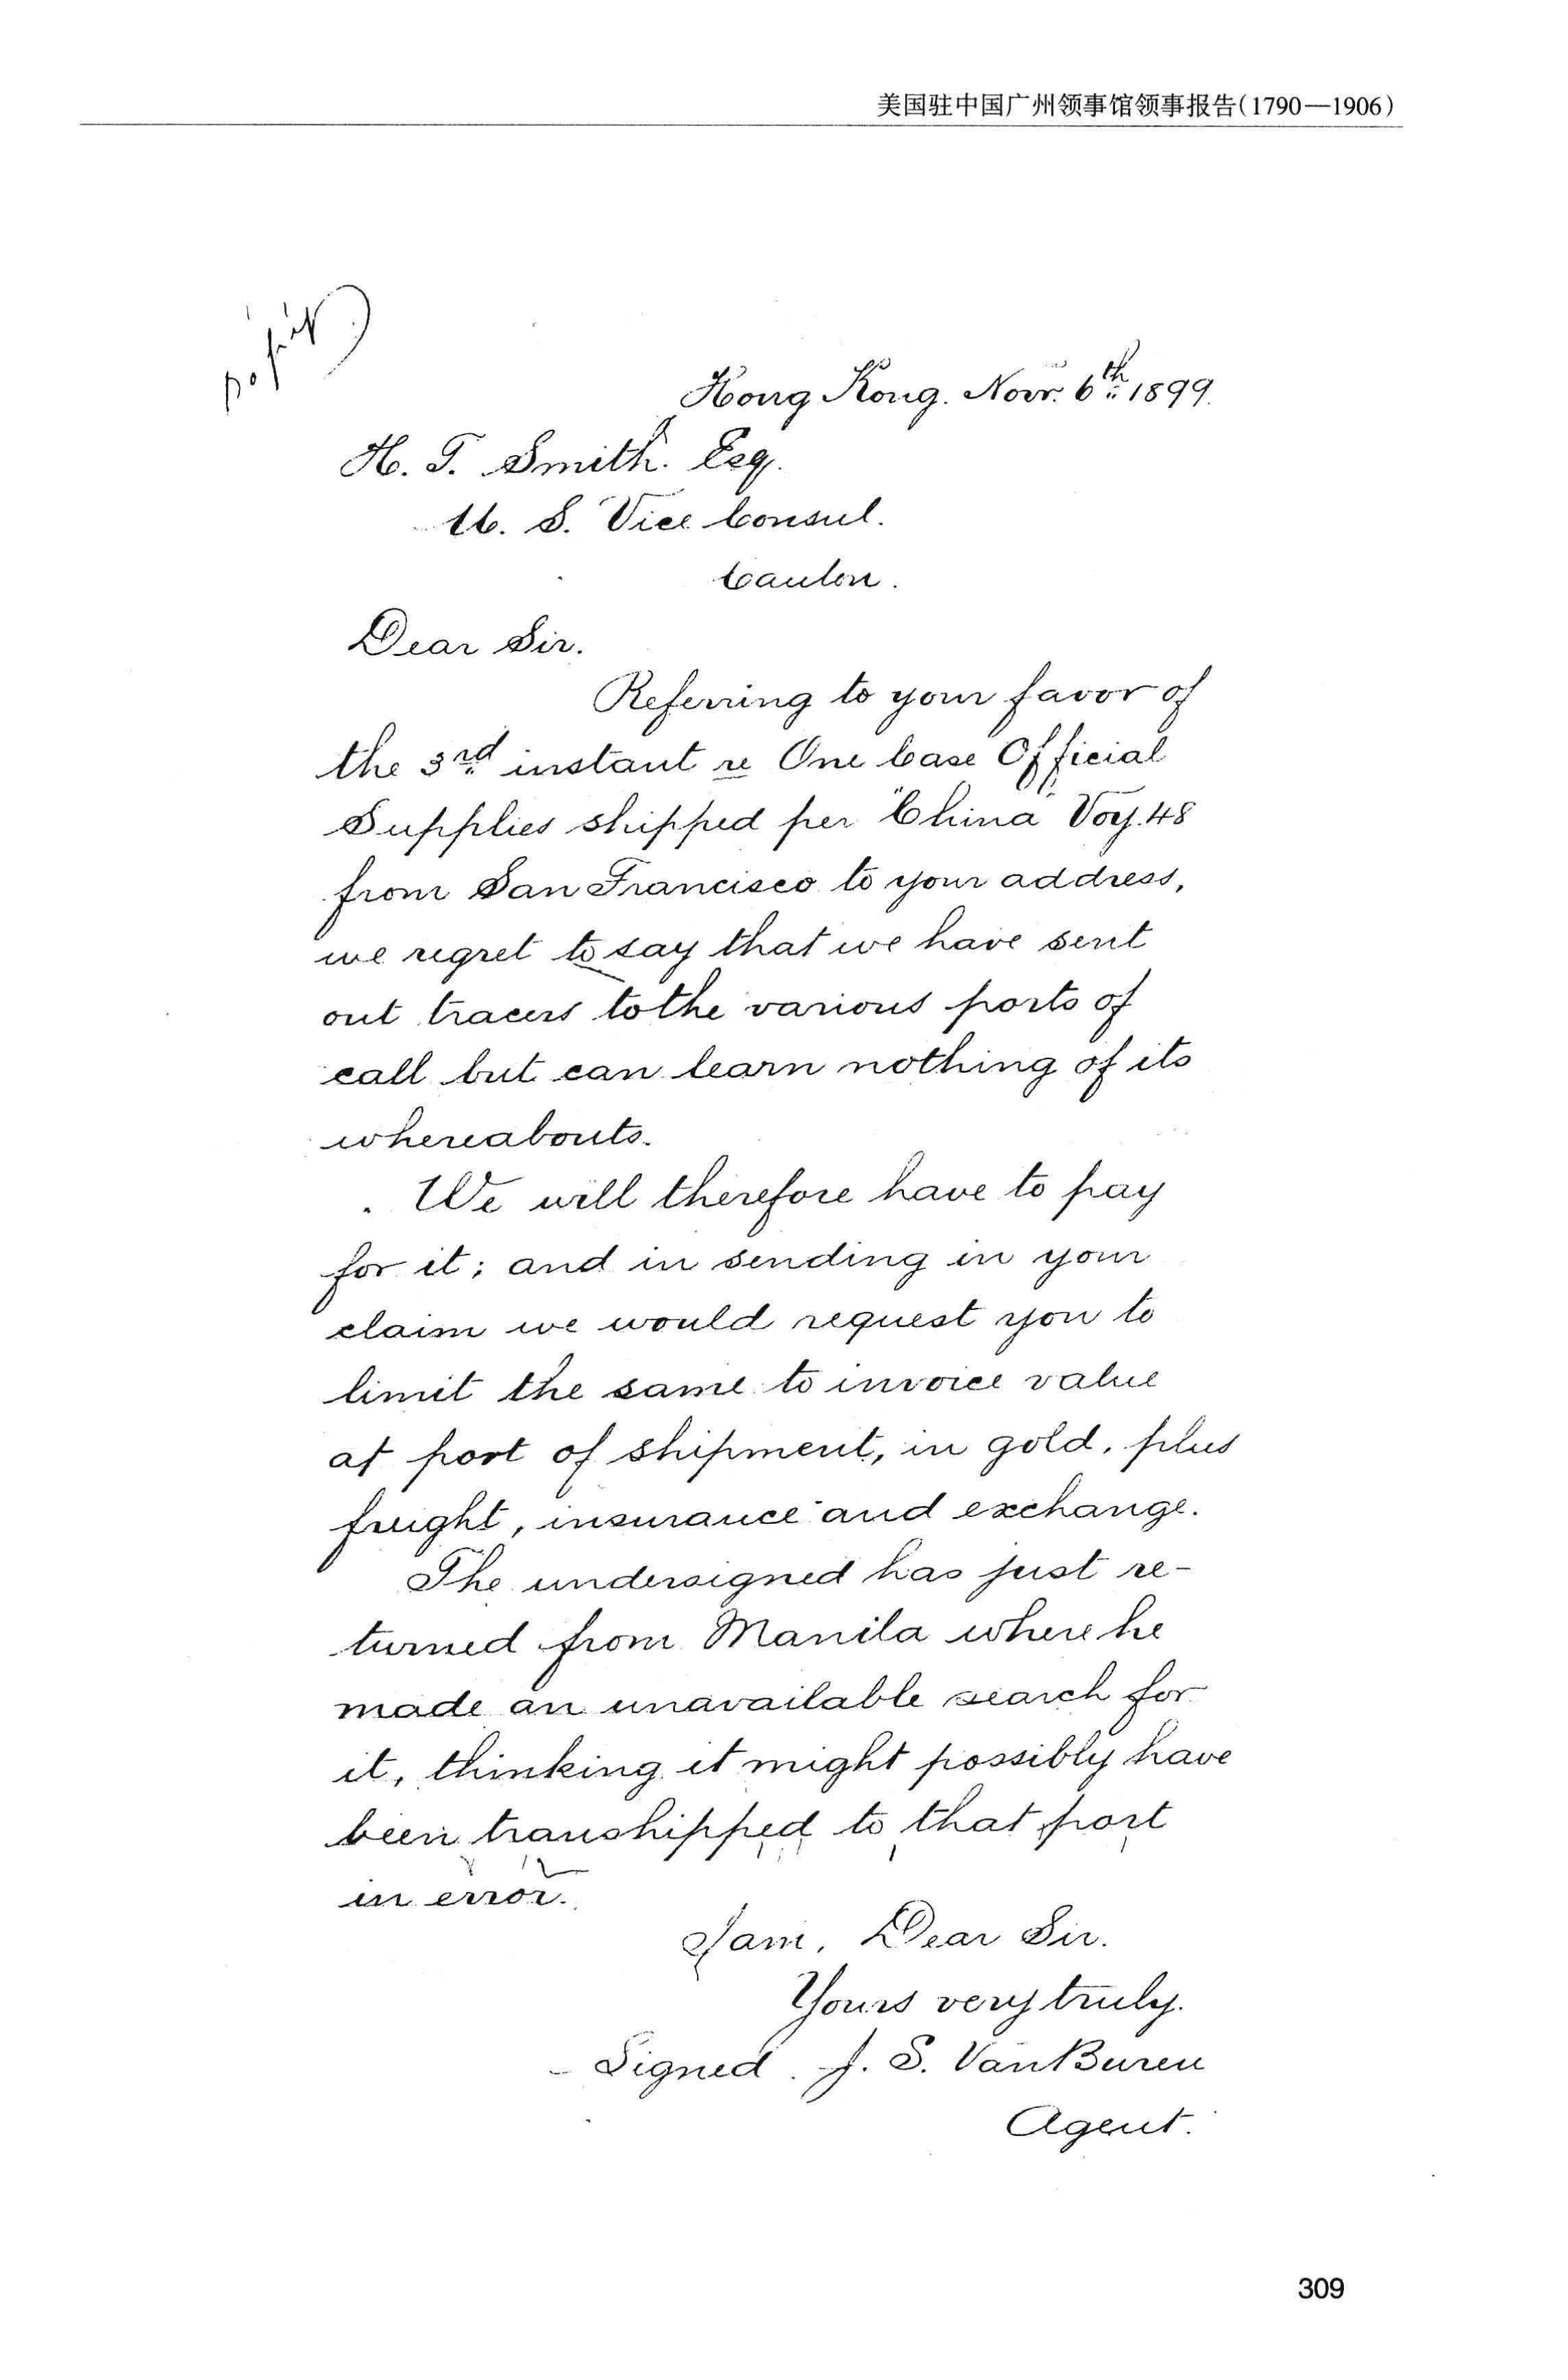 美国驻中国广州领事馆领事报告(1790—1906)
Hong Kong. Novr. 6th 1899.
H. T. Smith. Esq.
U. S. Vice Consul.
Canton.
Dear Sir.
Referring to your favor of
the 3rd instant re One Case Official
Supplies shipped per "China" Voy. 48
from San Francisco to your address,
we regret to say that we have sent
out tracers to the various ports of
call but can learn nothing of its
whereabouts.
We will therefore have to pay
for it; and in sending in your
claim we would request you to
limit the same to invoice value
at port of shipment, in gold, plus
freight, insurance and exchange.
The undersigned has just re-
turned from Manila where he
made an unavailable search for
it, thinking it might possibly have
been transhipped to that port
in error.
I am, Dear Sir.
Yours very truly.
Signed. J. S. Van Buren
Agent.
309